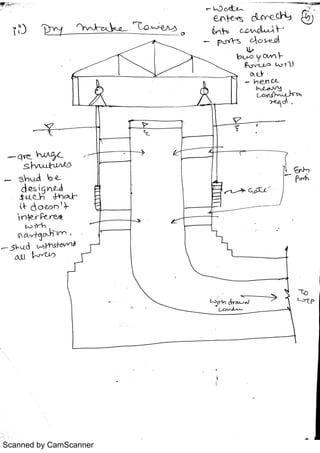 i) Dry Intake Towers.
- Water
enters directly
into conduit
- ports closed
⇓
buoyant
forces will
act.
- hence
heavy
construction
reqd.
5
- are huge
structures
- shud be
designed
such that
it doesn't
interferes
with
navigation.
- shud withstand
all forces
Entry
Ports
Gate
withdrawal
conduit
To
WTP
Scanned by CamScanner